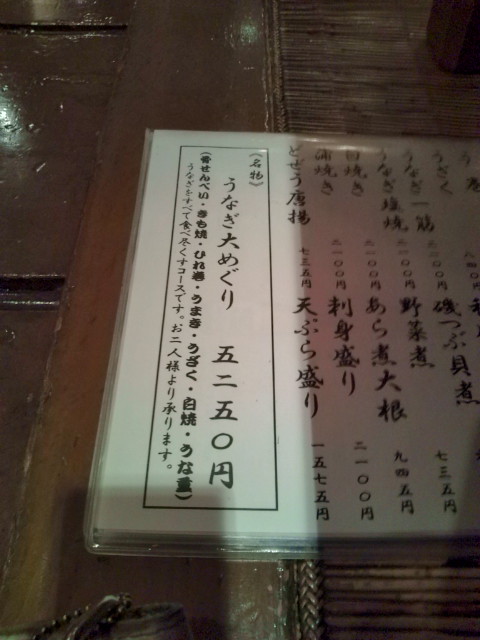 磯つぶ貝煮 七三五円
うなぎ一筋
野菜煮 九四五円
うなぎ塩焼 二一〇〇円
あら煮大根
白焼き 二一〇〇円
刺身盛り 二一〇〇円
蒲焼き 二一〇〇円
天ぷら盛り 一五七五円
どぜう唐揚 七三五円
《名物》
うなぎ大めぐり 五二五〇円
(骨せんべい・きも焼・ひれ巻・うまき・うざく・白焼・うな重)
うなぎをすべて食べ尽くすコースです。お二人様より承ります。